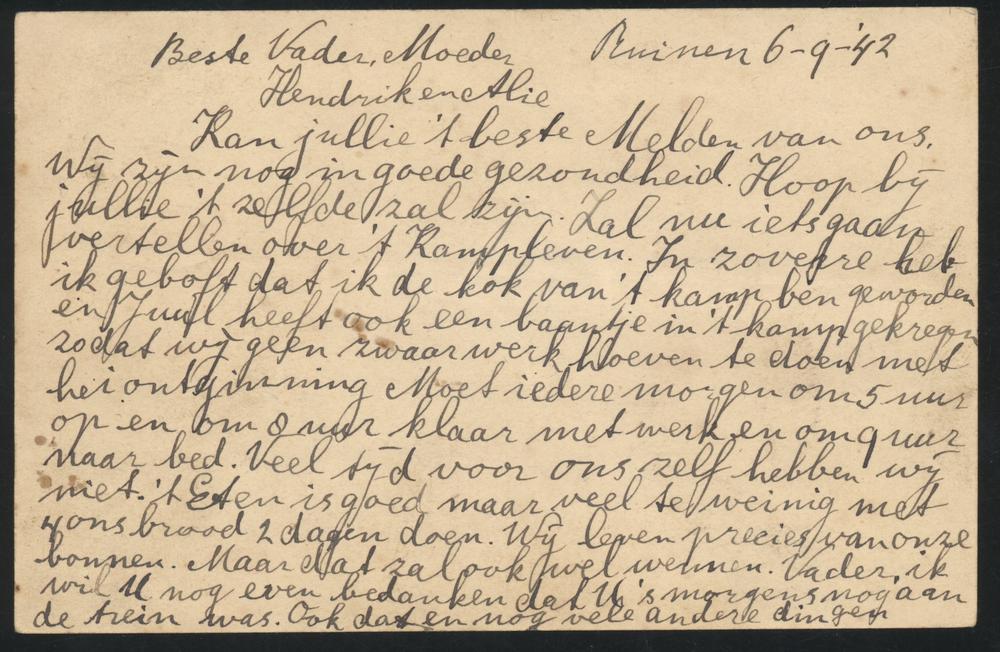 Beste Vader, Moeder Ruinen 6-9-'42
Hendrik en Alie
Kan jullie 't beste Melden van ons.
Wij zijn nog in goede gezondheid. Hoop bij
jullie 't zelfde zal zijn. Zal nu iets gaan
vertellen over 't Kampleven. In zoverre heb
ik geboft dat ik de kok van 't kamp ben geworden
en Juul heeft ook een baantje in 't kamp gekregen
zodat wij geen zwaar werk hoeven te doen met
hei ontginning Moet iedere morgen om 5 uur
op en om 8 uur klaar met werk en om 9 uur
naar bed. Veel tijd voor ons zelf hebben wij
niet. 't Eten is goed maar veel te weinig met
4 ons brood 2 dagen doen. Wij leven precies van onze
bonnen. Maar dat zal ook wel wennen. Vader, ik
wil U nog even bedanken dat U 's morgens nog aan
de trein was. Ook dat en nog vele andere dingen